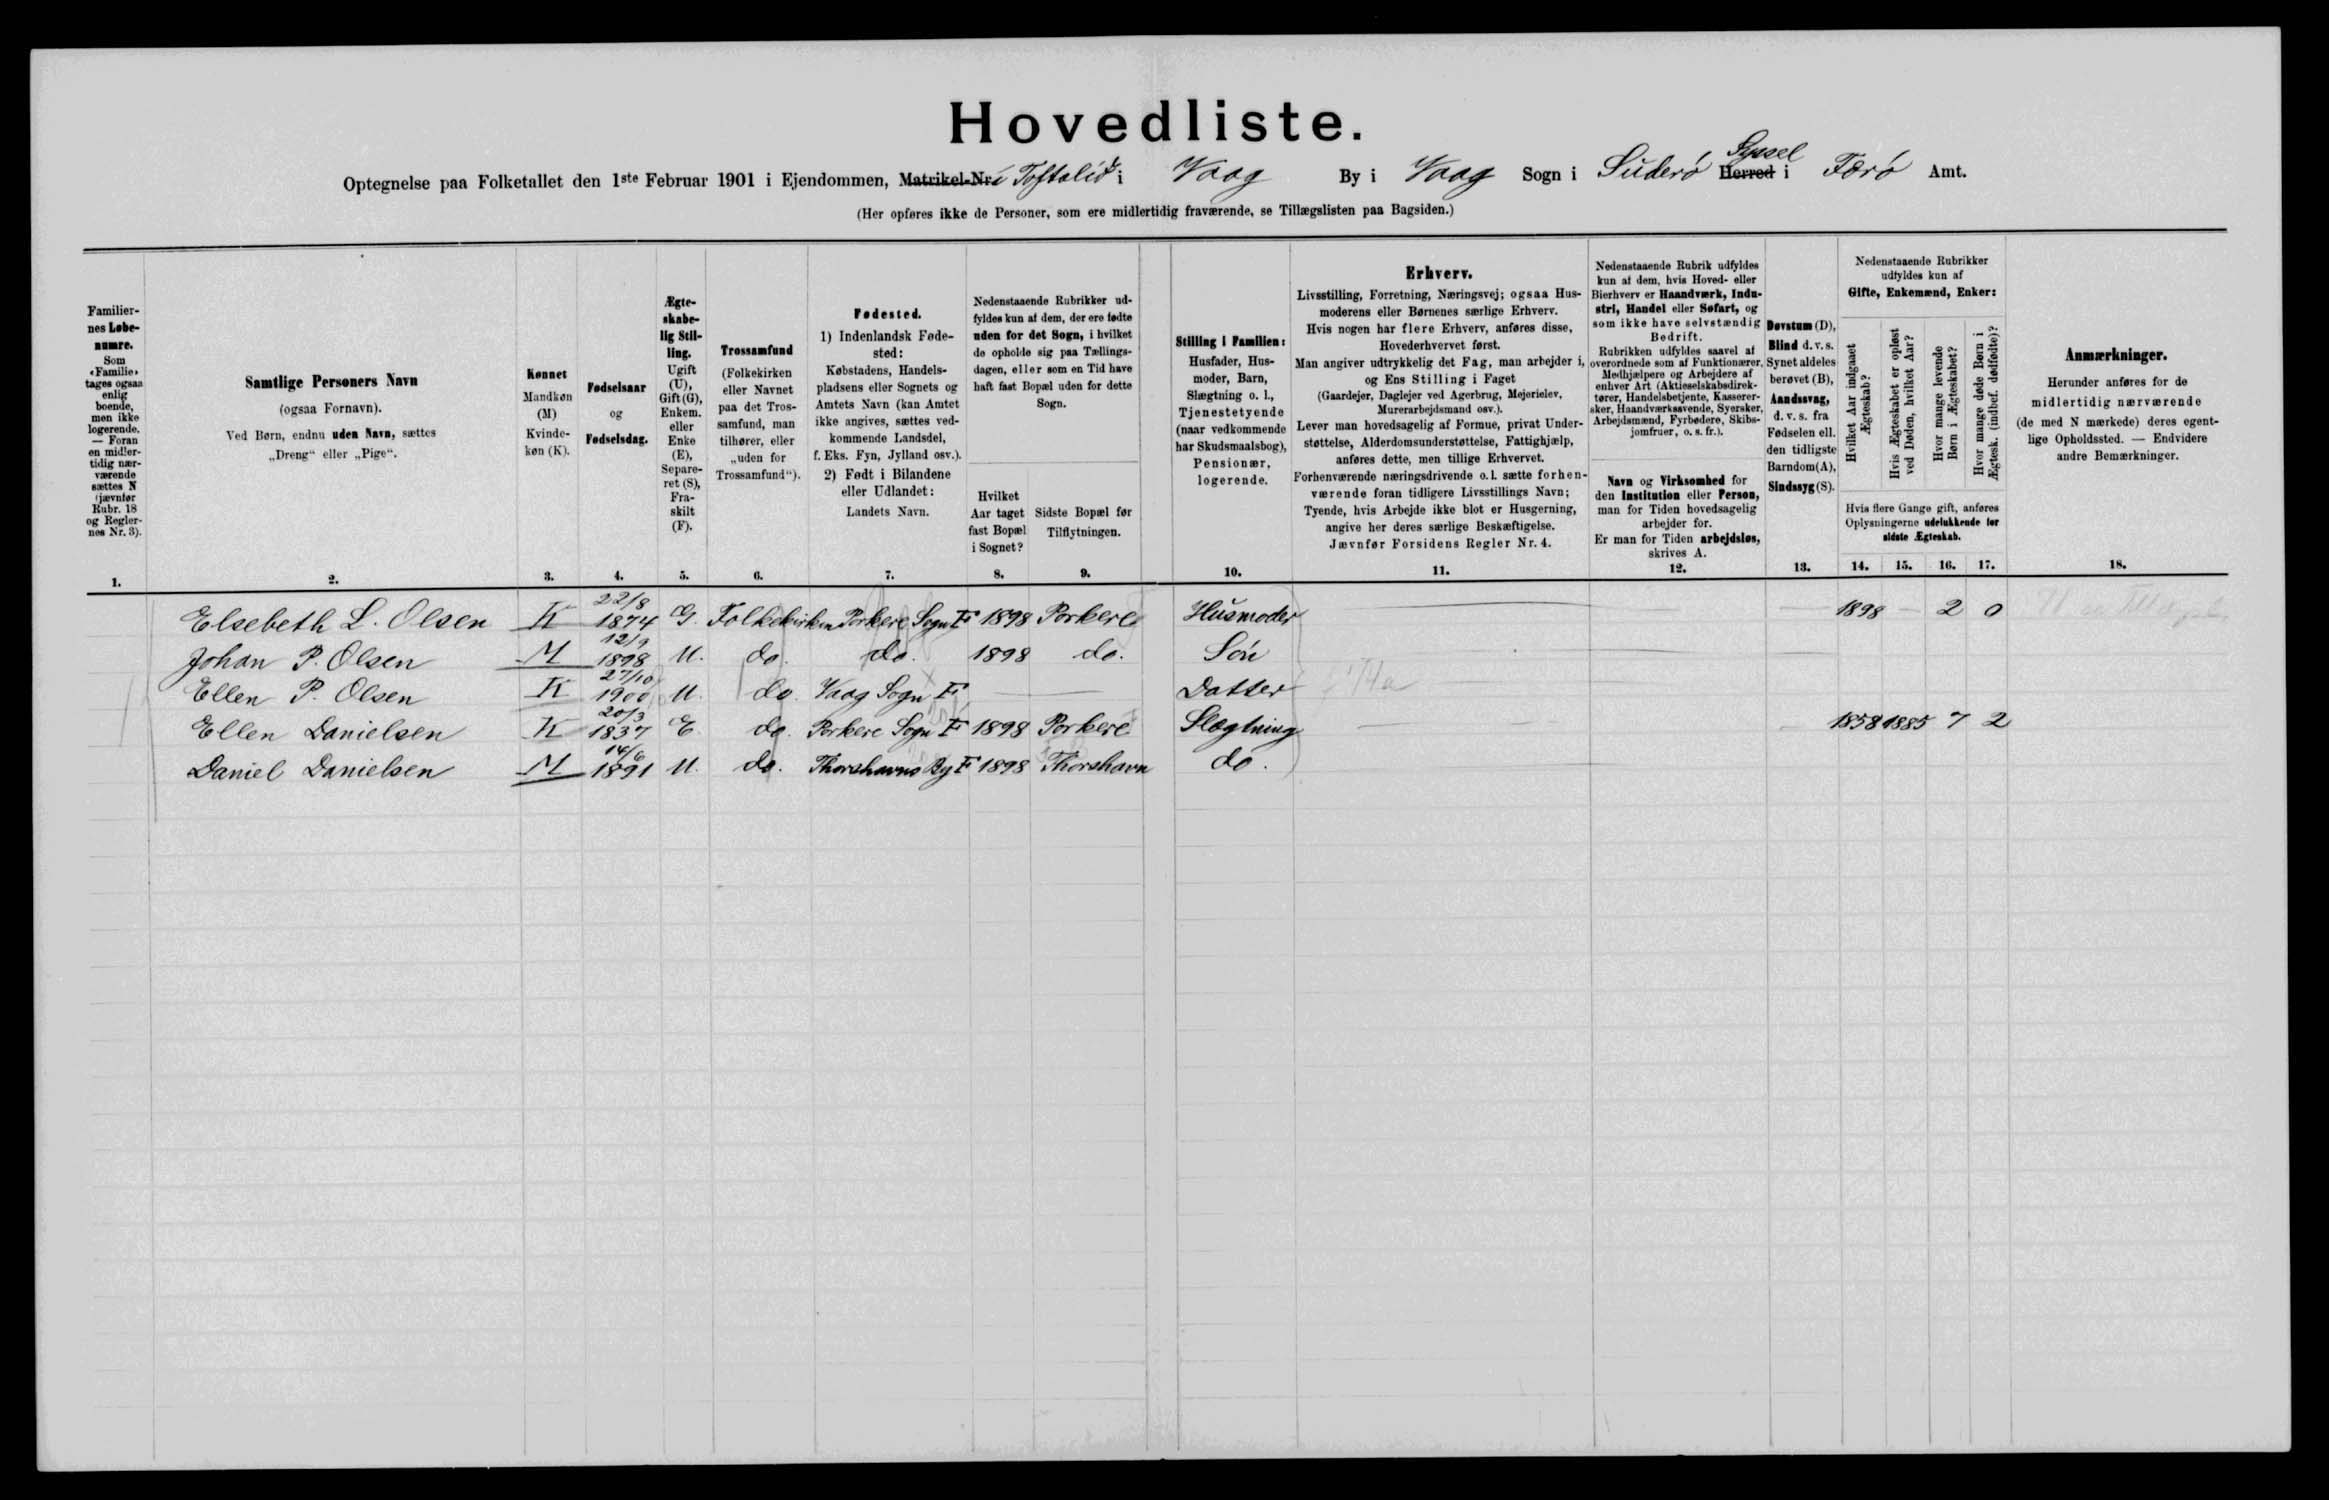 Hovedliste.
Optegnelse paa Folketallet den 1ste Februar 1901 i Ejendommen, Matrikel-Nr. i Toftalid i Vaag By i Vaag Sogn i Suderø Herred Syssel i Færø Amt.
(Her opføres ikke de Personer, som ere midlertidig fraværende, se Tillægslisten paa Bagsiden.)
Familier-
nes Løbe-
numre.
Som
«Familie»
tages ogsaa
enlig
boende,
men ikke
logerende.
— Foran
en midler-
tidig nær-
værende
sættes N
(jævnfør
Rubr. 18
og Regler-
nes Nr. 3).
1.
Samtlige Personers Navn
(ogsaa Fornavn).
Ved Børn, endnu uden Navn, sættes
„Dreng“ eller „Pige“.
2.
Kønnet
Mandkøn
(M)
Kvinde-
køn (K).
3.
Fødselsaar
og
Fødselsdag.
4.
Ægte-
skabe-
lig Stil-
ling.
Ugift
(U),
Gift (G),
Enkem.
eller
Enke
(E),
Separe-
ret (S),
Fra-
skilt
(F).
5.
Trossamfund
(Folkekirken
eller Navnet
paa det Tros-
samfund, man
tilhører, eller
„uden for
Trossamfund“).
6.
Fødested.
1) Indenlandsk Føde-
sted:
Købstadens, Handels-
pladsens eller Sognets og
Amtets Navn (kan Amtet
ikke angives, sættes ved-
kommende Landsdel,
f. Eks. Fyn, Jylland osv.).
2) Født i Bilandene
eller Udlandet:
Landets Navn.
7.
Nedenstaaende Rubrikker ud-
fyldes kun af dem, der ere fødte
uden for det Sogn, i hvilket
de opholde sig paa Tællings-
dagen, eller som en Tid have
haft fast Bopæl uden for dette
Sogn.
Hvilket
Aar taget
fast Bopæl
i Sognet?
8.
Sidste Bopæl før
Tilflytningen.
9.
Stilling i Familien:
Husfader, Hus-
moder, Barn,
Slægtning o. l.,
Tjenestetyende
(naar vedkommende
har Skudsmaalsbog),
Pensionær,
logerende.
10.
Erhverv.
Livsstilling, Forretning, Næringsvej; ogsaa Hus-
moderens eller Børnenes særlige Erhverv.
Hvis nogen har flere Erhverv, anføres disse,
Hovederhvervet først.
Man angiver udtrykkelig det Fag, man arbejder i,
og Ens Stilling i Faget
(Gaardejer, Daglejer ved Agerbrug, Mejerielev,
Murerarbejdsmand osv.).
Lever man hovedsagelig af Formue, privat Under-
støttelse, Alderdomsunderstøttelse, Fattighjælp,
anføres dette, men tillige Erhvervet.
Forhenværende næringsdrivende o. l. sætte forhen-
værende foran tidligere Livsstillings Navn;
Tyende, hvis Arbejde ikke blot er Husgerning,
angive her deres særlige Beskæftigelse.
Jævnfør Forsidens Regler Nr. 4.
11.
Nedenstaaende Rubrik udfyldes
kun af dem, hvis Hoved- eller
Bierhverv er Haandværk, Indu-
stri, Handel eller Søfart, og
som ikke have selvstændig
Bedrift.
Rubrikken udfyldes saavel af
overordnede som af Funktionærer,
Medhjælpere og Arbejdere af
enhver Art (Aktieselskabsdirek-
tører, Handelsbetjente, Kasserer-
sker, Haandværkssvende, Syersker,
Arbejdsmænd, Fyrbødere, Skibs-
jomfruer, o. s. fr.).
Navn og Virksomhed for
den Institution eller Person,
man for Tiden hovedsagelig
arbejder for.
Er man for Tiden arbejdsløs,
skrives A.
12.
Døvstum (D),
Blind d. v. s.
Synet aldeles
berøvet (B),
Aandssvag,
d. v. s. fra
Fødselen ell.
den tidligste
Barndom (A),
Sindssyg (S).
13.
Nedenstaaende Rubrikker
udfyldes kun af
Gifte, Enkemænd, Enker:
Hvilket Aar indgaaet
Ægteskab?
Hvis Ægteskabet er opløst
ved Døden, hvilket Aar?
Hvor mange levende
Børn i Ægteskabet?
Hvor mange døde Børn i
Ægtesk. (indbef. dødfødte)?
Hvis flere Gange gift, anføres
Oplysningerne udelukkende for
sidste Ægteskab.
14. 15. 16. 17.
Anmærkninger.
Herunder anføres for de
midlertidig nærværende
(de med N mærkede) deres egent-
lige Opholdssted. — Endvidere
andre Bemærkninger.
18.
Elsebeth L. Olsen K 22/8 1874 G. Folkekirken Porkere Sogn F 1898 Porkere Husmoder 1898 — 2 0
Johan P. Olsen M 12/9 1898 U. do. do. 1898 do. Søn
Ellen P. Olsen K 27/10 1900 U. do. Vaag Sogn F Datter
Ellen Danielsen K 20/3 1837 E do. Porkere Sogn F 1898 Porkere Slægtning 1858 1885 7 2
Daniel Danielsen M 14/6 1891 U. do. Thorshavns By F 1898 Thorshavn do.